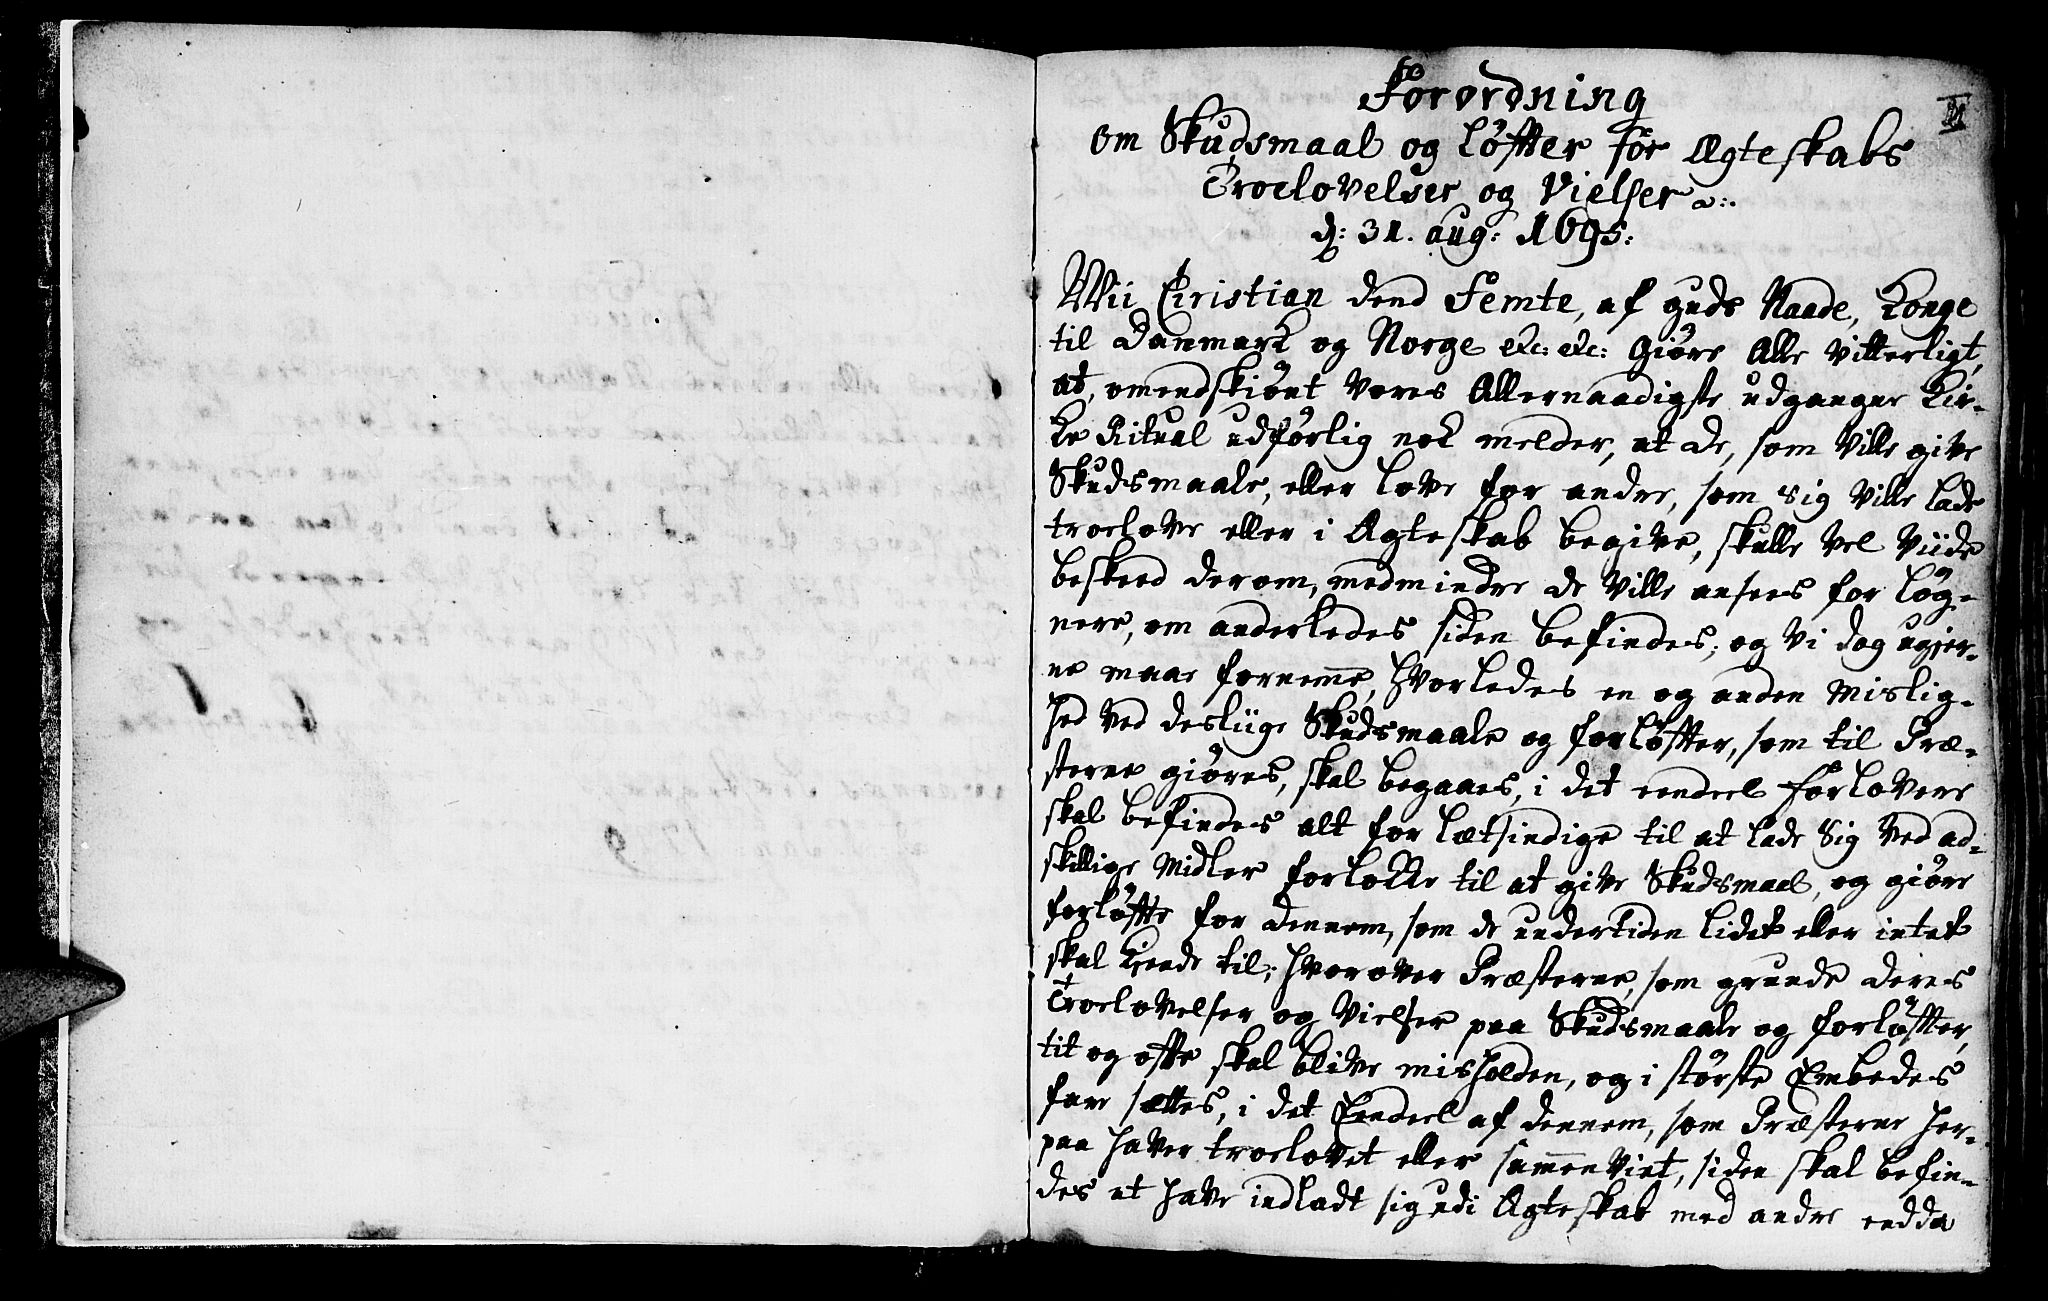 Forordning
om Skudsmaal og Løffter før Ægteskabs
Troelovelser og Vielser
d: 31. aug: 1695:
Wii Christian dend Femte, af guds Naade, Konge
til Danmark og Norge etc: etc: Giøre Alle Vitterligt,
at, omendskiønt Vores Allernaadigste udgangne Kir-
ke Ritual udførlig nok melder, at de, som Ville give
Skudsmaale, eller love for andre, som sig Ville lade
troelove eller i Ægteskab begive, skulle Vel Viide
beskeed derom, medmindre de Ville ansees for Løg-
nere, om anderledes siden befindes; og Vi dog ugjer-
ne maae fornemme, hvorledes en og anden Mislig-
hed Ved desliige Skudsmaale og forløffter, som til Præ-
sterne giøres, skal begaaes, i det eendeel forlovere
skal befindes alt for lætsindige til at lade Sig Ved ad-
skillige Midler forlokke til at give Skudsmael, og giøre
forløffte for dennem, som de undertiden lidet eller intet
skal kiende til; hvorover Præsterne, som grunde deres
Troelovelser og Vielser paa Skudsmaale og forløffter,
tit og offte skal blive misholden, og i største Embedes
fare sættes, i det Eendeel af dennem, som Præsterne her-
paa haver troelovet eller sammenviet, siden skal befin-
des at have indladt sig udi Ægteskab med andre endda